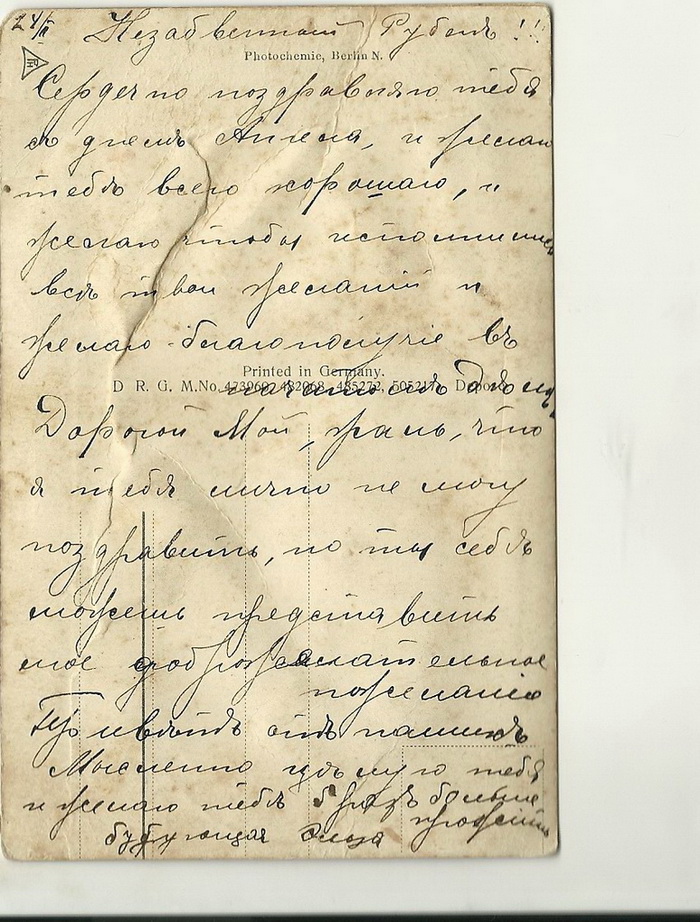 24/II Незабвенный Рубенъ!!
Photochemie, Berlin N.
Сердечно поздравляю тебя
съ днемъ Ангела, и желаю
тебѣ всего хорошаго, и
желаю чтобы исполнились
всѣ твои желаній и
желаю благополучіе въ
Printed in Germany.
D. R. G. M. No. 4739602, 482068, 485272, 505217
Дорогой Мой, жаль, что
я тебя лично не могу
поздравить, но ты себѣ
можешь представить
мое доброжелательное
пожеланіе
Привѣтъ отъ нашихъ
Мысленно цѣлую тебя
и желаю тебѣ разъ больше
будующая